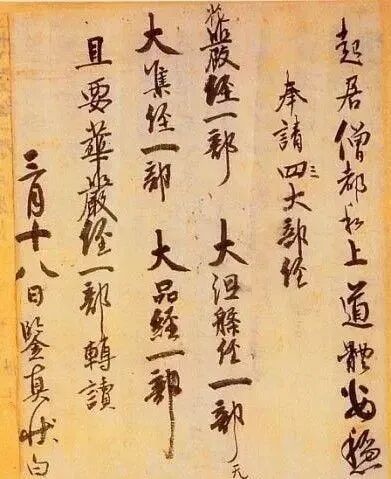 起居僧都和上道體安穩
奉請四三大部經
華嚴經一部 大涅槃經一部无
大集經一部 大品經一部
且要華嚴經一部轉讀
三月十八日鑒真状白